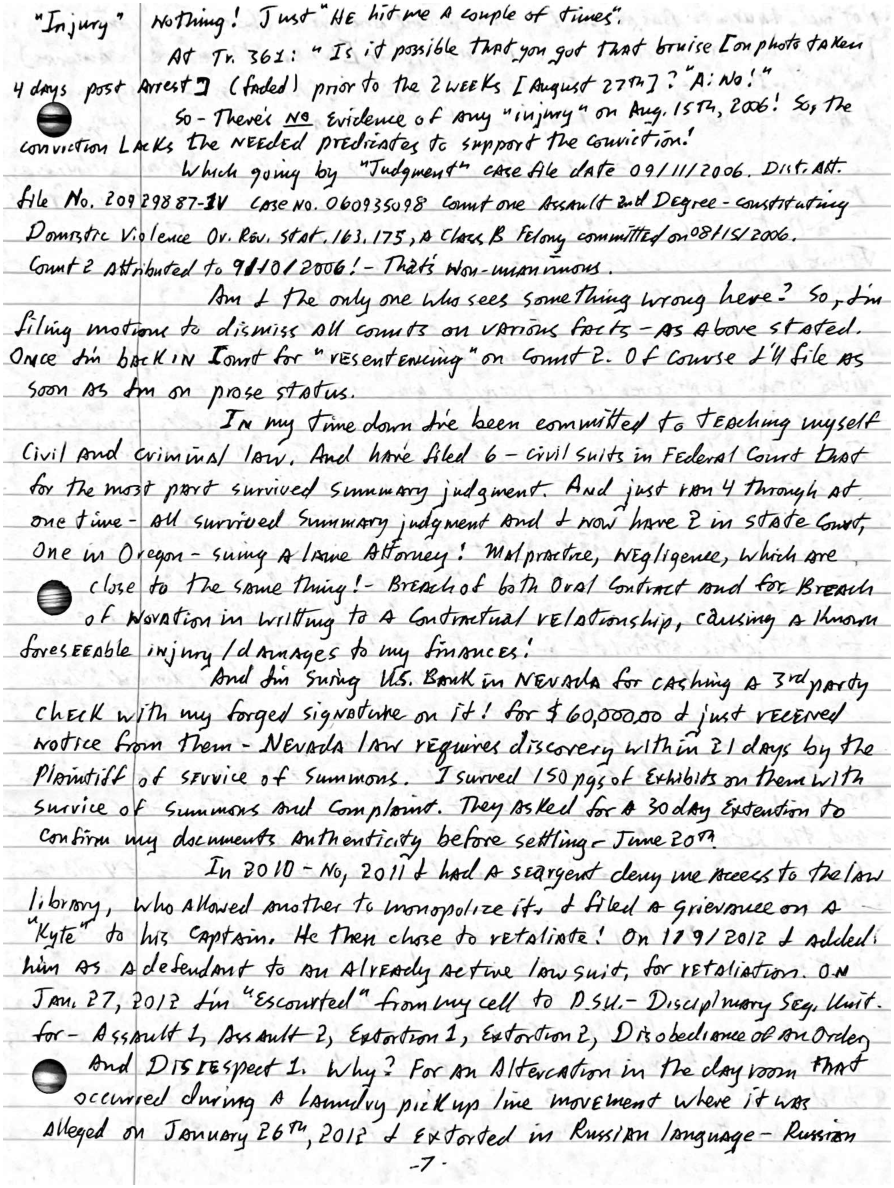 "Injury" Nothing! Just "HE hit me A couple of times".
At Tr. 361: "Is it possible that you got that bruise [on photo taken
4 days post Arrest] (faded) prior to the 2 weeks [August 27th]? "A: No!"
So - There's NO Evidence of Any "injury" on Aug. 15th, 2006! So, the
conviction LACKS the NEEDED predicates to support the conviction!
Which going by "Judgment" case file date 09/11/2006. Dist. Att.
file No. 2092988 7-IV Case No. 060935098 Count one Assault 2nd Degree - constituting
Domestic Violence Or. Rev. Stat. 163.175, A Class B Felony committed on 08/15/2006.
Count 2 Attributed to 9/10/2006! - That's Non-unanimous.
Am I the only one who sees something wrong here? So, I'm
filing motions to dismiss All counts on various facts - As Above stated.
Once I'm back IN Court for "resentencing" on Count 2. Of course I'll file as
soon as I'm on prose status.
In my time down I've been committed to teaching myself
Civil and criminal law. And have filed 6 - civil suits in Federal Court that
for the most part survived summary judgment. And just ran 4 through at
one time - All survived Summary judgment and I now have 2 in state Court,
One in Oregon - suing a lame Attorney! Malpractice, Negligence, which are
close to the same thing! - Breach of both Oral Contract and for Breach
of Novation in writting to a Contractual relationship, causing a known
foreseeable injury/damages to my finances!
And I'm suing U.S. Bank in NEVADA for cashing a 3rd party
check with my forged signature on it! for $60,000.00 I just received
notice from them - Nevada law requires discovery within 21 days by the
Plaintiff of service of Summons. I surved 150 pgs of Exhibits on them with
survice of Summons and Complaint. They asked for a 30 day Extention to
confirm my documents authenticity before settling - June 20th
In 2010 - No, 2011 I had a seargent deny me access to the law
library, who allowed another to monopolize it. I filed a grievance on a
"Kyte" to his Captain. He then chose to retaliate! On 1/19/2012 I added
him as a defendant to an Already active law suit, for retaliation. ON
Jan. 27, 2012 I'm "Escourted" from my cell to D.S.U. - Disciplinary Seg. Unit.
for - Assault 1, Assault 2, Extortion 1, Extortion 2, Disobediance of an Order,
And Disrespect 1. Why? For an Altercation in the dayroom that
occurred during a Laundry pickup line movement where it was
Alleged on January 26th, 2012 I extorted in Russian language - Russian
-7-